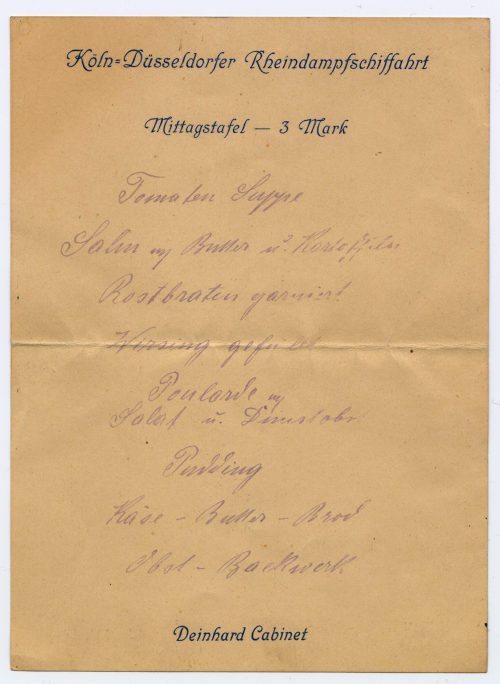 Köln=Düsseldorfer Rheindampfschiffahrt
Mittagstafel — 3 Mark
Tomaten Suppe
Salm m/ Butter u. Kartoffeln
Rostbraten garniert
Wirsing gefüllt
Poularde m/
Salat u. Dunstobst
Pudding
Käse - Butter - Brod
Obst - Backwerk
Deinhard Cabinet